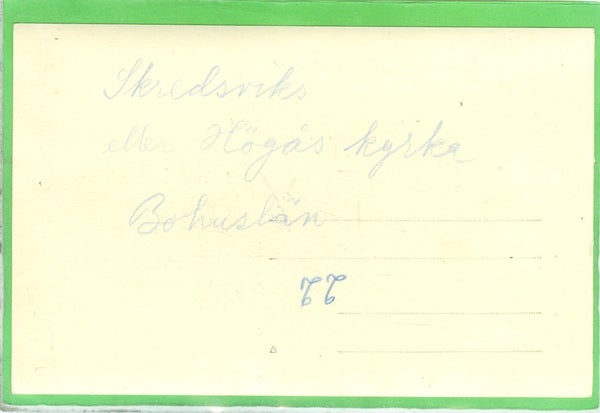 Skredsviks
eller Högås kyrka
Bohuslän